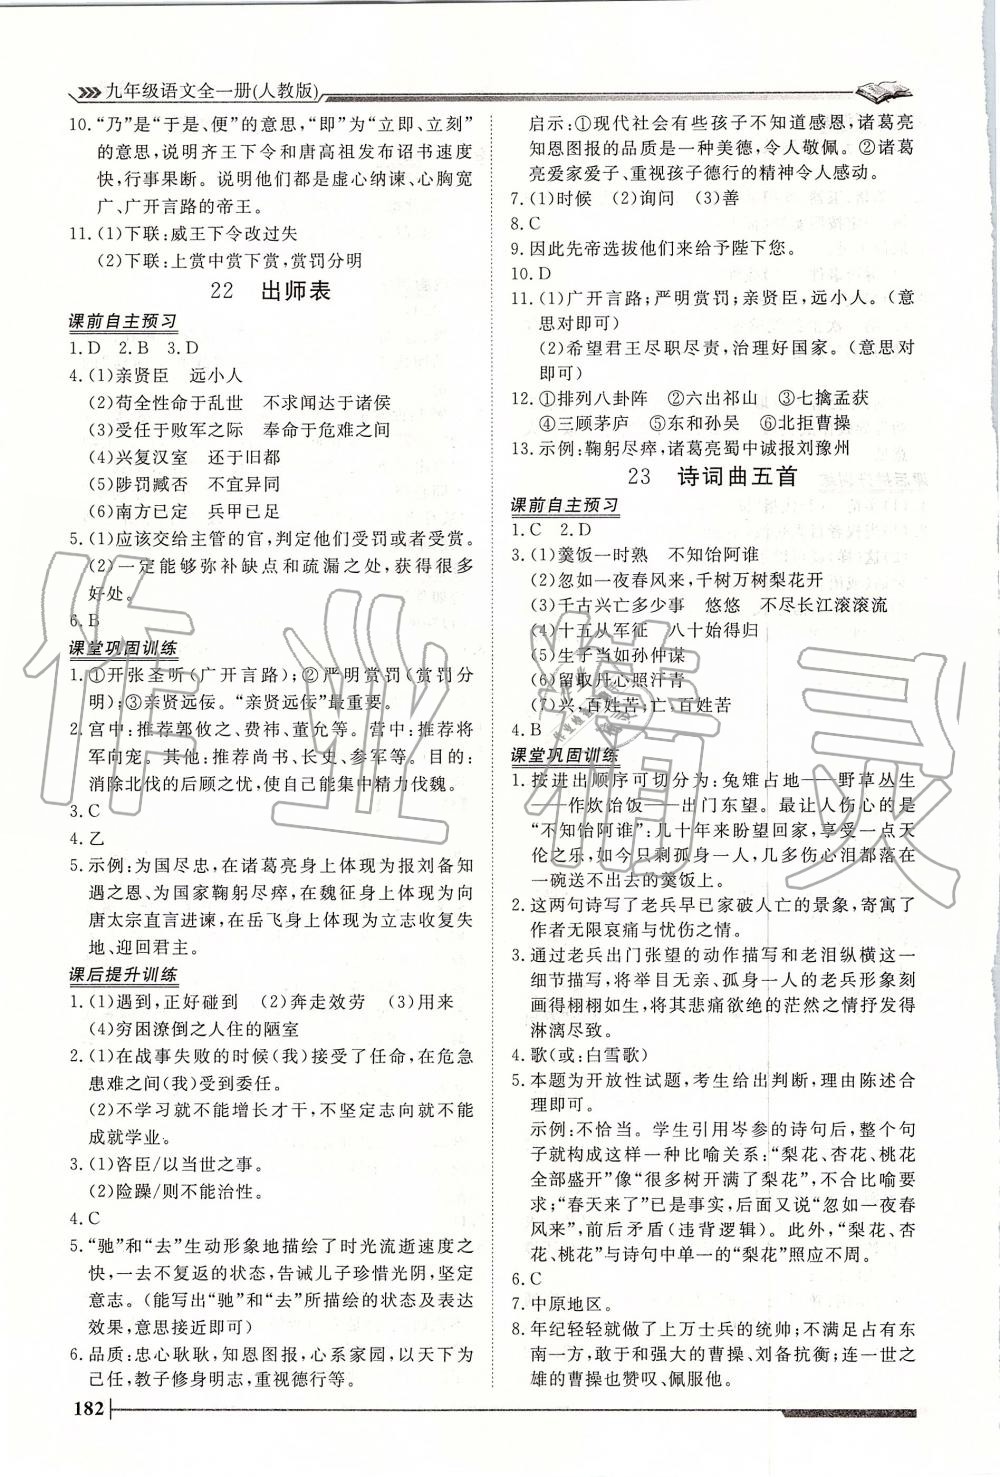 九年级语文全一册(人教版)
10. “乃”是“于是、便”的意思，“即”为“立即、立刻”
的意思，说明齐王下令和唐高祖发布诏书速度
快，行事果断。说明他们都是虚心纳谏、心胸宽
广、广开言路的帝王。
11. (1)下联：威王下令改过失
(2)下联：上赏中赏下赏，赏罚分明
22 出师表
课前自主预习
1. D 2. B 3. D
4. (1)亲贤臣 远小人
(2)苟全性命于乱世 不求闻达于诸侯
(3)受任于败军之际 奉命于危难之间
(4)兴复汉室 还于旧都
(5)陟罚臧否 不宜异同
(6)南方已定 兵甲已足
5. (1)应该交给主管的官，判定他们受罚或者受赏。
(2)一定能够弥补缺点和疏漏之处，获得很多
好处。
6. B
课堂巩固训练
1. ①开张圣听(广开言路)；②严明赏罚(赏罚分
明)；③亲贤远佞。“亲贤远佞”最重要。
2. 宫中：推荐郭攸之、费祎、董允等。营中：推荐将
军向宠。其他：推荐尚书、长史、参军等。目的：
消除北伐的后顾之忧，使自己能集中精力伐魏。
3. C
4. 乙
5. 示例：为国尽忠，在诸葛亮身上体现为报刘备知
遇之恩、为国家鞠躬尽瘁，在魏征身上体现为向
唐太宗直言进谏，在岳飞身上体现为立志收复失
地、迎回君主。
课后提升训练
1. (1)遇到，正好碰到 (2)奔走效劳 (3)用来
(4)穷困潦倒之人住的陋室
2. (1)在战事失败的时候(我)接受了任命，在危急
患难之间(我)受到委任。
(2)不学习就不能增长才干，不坚定志向就不能
成就学业。
3. (1)咨臣/以当世之事。
(2)险躁/则不能治性。
4. C
5. “驰”和“去”生动形象地描绘了时光流逝速度之
快，一去不复返的状态，告诫儿子珍惜光阴，坚定
意志。(能写出“驰”和“去”所描绘的状态及表达
效果，意思接近即可)
6. 品质：忠心耿耿，知恩图报，心系家园，以天下为
己任，教子修身明志，重视德行等。
182
启示：①现代社会有些孩子不知道感恩，诸葛亮
知恩图报的品质是一种美德，令人敬佩。②诸葛
亮爱家爱子、重视孩子德行的精神令人感动。
7. (1)时候 (2)询问 (3)善
8. C
9. 因此先帝选拔他们来给予陛下您。
10. D
11. (1)广开言路；严明赏罚；亲贤臣，远小人。(意
思对即可)
(2)希望君王尽职尽责，治理好国家。(意思对
即可)
12. ①排列八卦阵 ②六出祁山 ③七擒孟获
④三顾茅庐 ⑤东和孙吴 ⑥北拒曹操
13. 示例：鞠躬尽瘁，诸葛亮蜀中诚报刘豫州
23 诗词曲五首
课前自主预习
1. C 2. D
3. (1)羹饭一时熟 不知饴阿谁
(2)忽如一夜春风来，千树万树梨花开
(3)千古兴亡多少事 悠悠 不尽长江滚滚流
(4)十五从军征 八十始得归
(5)生子当如孙仲谋
(6)留取丹心照汗青
(7)兴，百姓苦；亡，百姓苦
4. B
课堂巩固训练
1. 按进出顺序可切分为：兔雉占地——野草丛生
——作炊饴饭——出门东望。最让人伤心的是
“不知饴阿谁”：几十年来盼望回家，享受一点天
伦之乐，如今只剩孤身一人，几多伤心泪都落在
一碗送不出去的羹饭上。
2. 这两句诗写了老兵早已家破人亡的景象，寄寓了
作者无限哀痛与忧伤之情。
3. 通过老兵出门张望的动作描写和老泪纵横这一
细节描写，将举目无亲、孤身一人的老兵形象刻
画得栩栩如生，将其悲痛欲绝的茫然之情抒发得
淋漓尽致。
4. 歌(或：白雪歌)
5. 本题为开放性试题，考生给出判断，理由陈述合
理即可。
示例：不恰当。学生引用岑参的诗句后，整个句
子就构成这样一种比喻关系：“梨花、杏花、桃花
全部盛开”像“很多树开满了梨花”，不合比喻要
求；“春天来了”已是事实，后面又说“忽如一夜春
风来”，前后矛盾(违背逻辑)。此外，“梨花、杏
花、桃花”与诗句中单一的“梨花”照应不周。
6. C
7. 中原地区。
8. 年纪轻轻就做了上万士兵的统帅；不满足占有东
南一方，敢于和强大的曹操、刘备抗衡；连一世之
雄的曹操也赞叹、佩服他。
作业精灵